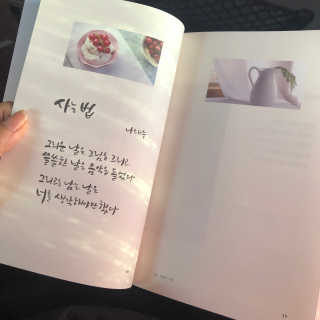 사는 법
나태주
그리운 날은 그림을 그리고
쓸쓸한 날은 음악을 들었다
그리고도 남는 날은
너를 생각해야만 했다